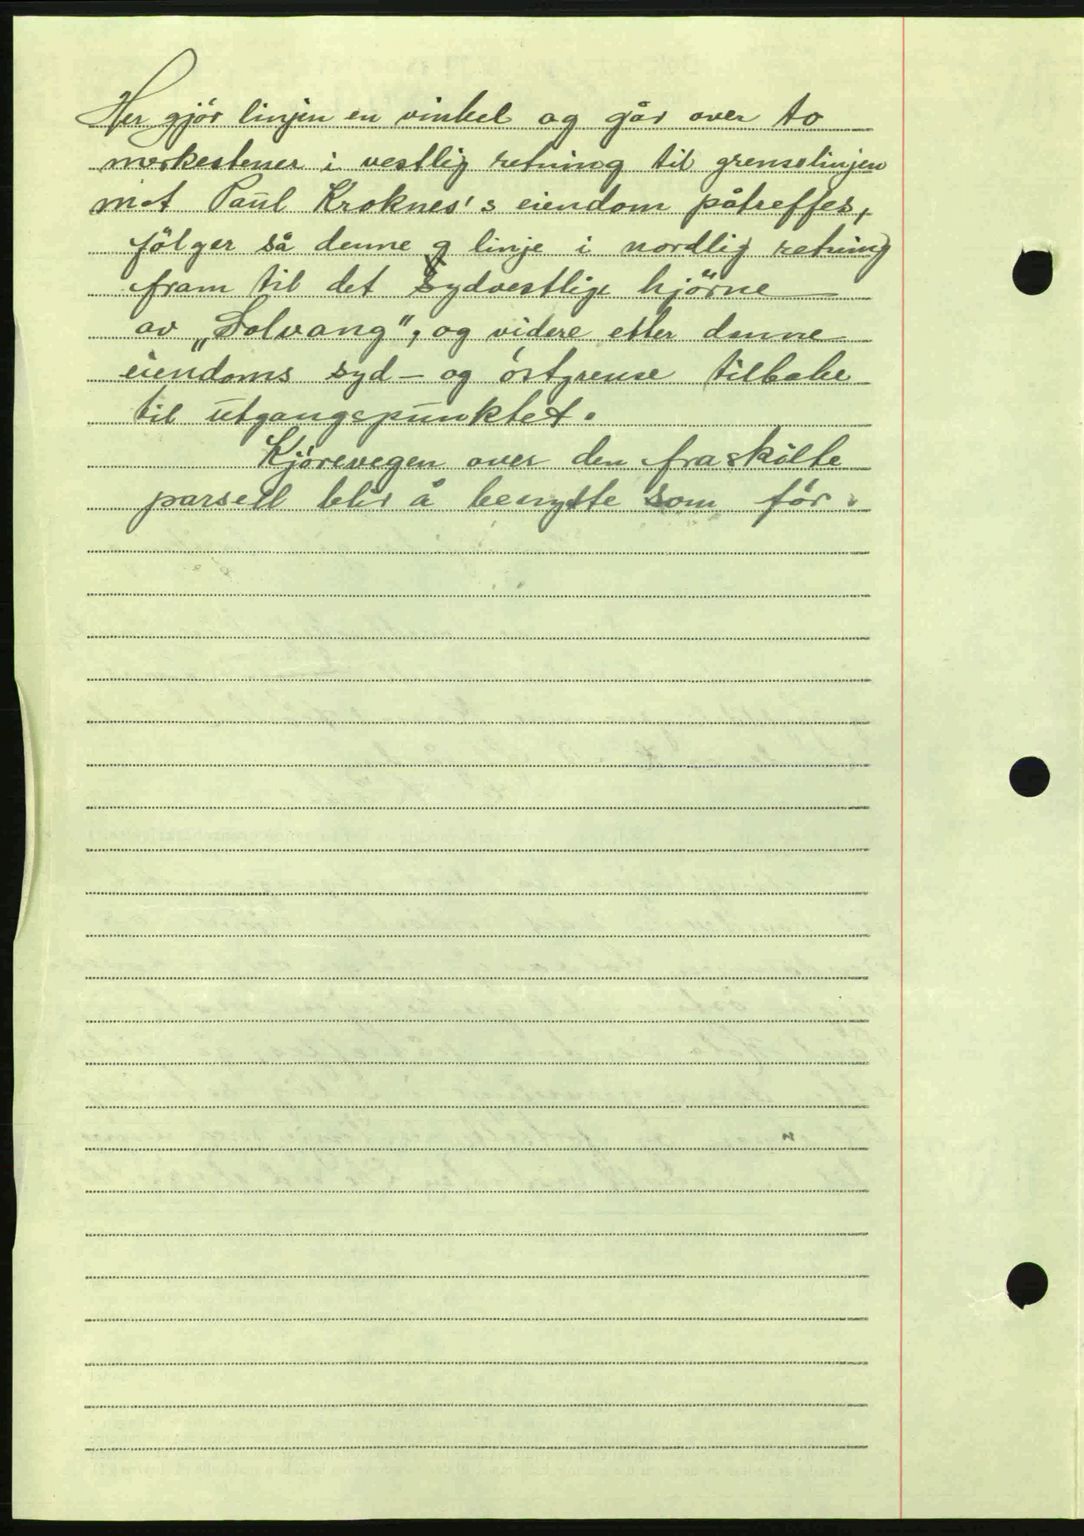 Her gjör linjen en vinkel og går over to
merkestener i vestlig retning til grenselinjen
mot Paul Kroknes's eiendom påtreffes,
fölger så denne g linje i nordlig retning
fram til det sydvestlige hjörne
av „Solvang", og videre etter denne
eiendoms syd- og östgrense tilbake
til utgangspunktet.
Kjörevegen over den fraskilte
parsell blir å benytte som för.